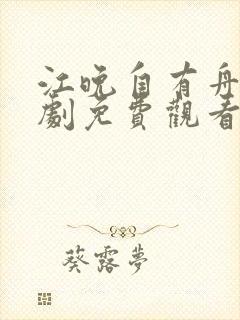 江晚自有舟
劇免費觀看
葵露夢